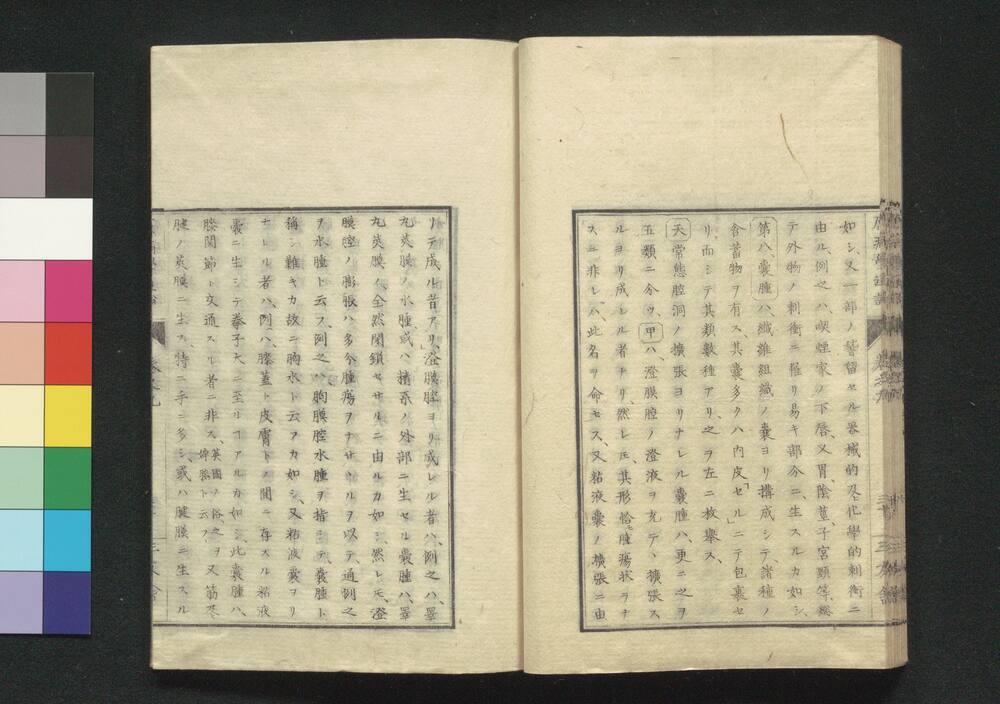 如シ、又一部ノ瘀留セル器械的及化學的刺衝ニ
由ル、例之ハ、喫煙家ノ下唇、又胃、陰莖、子宮頸等、總
テ外物ノ刺衝ニ罹リ易キ部分ニ、生スルカ如シ、
第八、囊腫ハ、纖維組織ノ囊ヨリ構成シテ、諸種ノ
含蓄物ヲ有ス、其囊多クハ内皮「セル」ニテ包裹セ
リ、而シテ其類數種アリ、之ヲ左ニ枚擧ス、
天 常態腔洞ノ擴張ヨリナレル囊腫ハ、更ニ之ヲ
五類ニ分ツ、甲ハ、澄膜腔ノ澄液ヲ充テ、擴張ス
ルヨリ成レル者ナリ、然レ𪜈、其形恰モ腫瘍状ヲナ
スニ非レハ、此名ヲ命セス、又粘液囊ノ擴張ニ由
リテ成ル者アリ、澄膜腔ヨリ成レル者ハ、例之ハ、睪
丸莢膜ノ水腫、或ハ精系ノ外部ニ生セル囊腫ハ、睪
丸莢膜ノ全然閉鎖セサルニ由ルカ如シ、然レ𪜈、澄
膜腔ノ膨脹ハ、多今腫瘍ヲナサヽルヲ以テ、通例之
ヲ水腫ト云フ、例之ハ、胸膜腔水腫ヲ指シテ、囊腫ト
稱シ難キカ故ニ、胸水ト云フカ如シ、又粘液囊ヨリ
ナレル者ハ、例ハ、膝蓋ト皮膚トノ間ニ存スル粘液
囊ニ生シテ、拳子大ニ至リヿアルカ如シ、此囊腫ハ、
膝関節ト交通スル者ニ非ス、英國ノ俗、之ヲ婢膝ト云フ、又筋及
腱ノ莢膜ニ生ス、特ニ手ニ多シ、或ハ腱膜ニ生スル